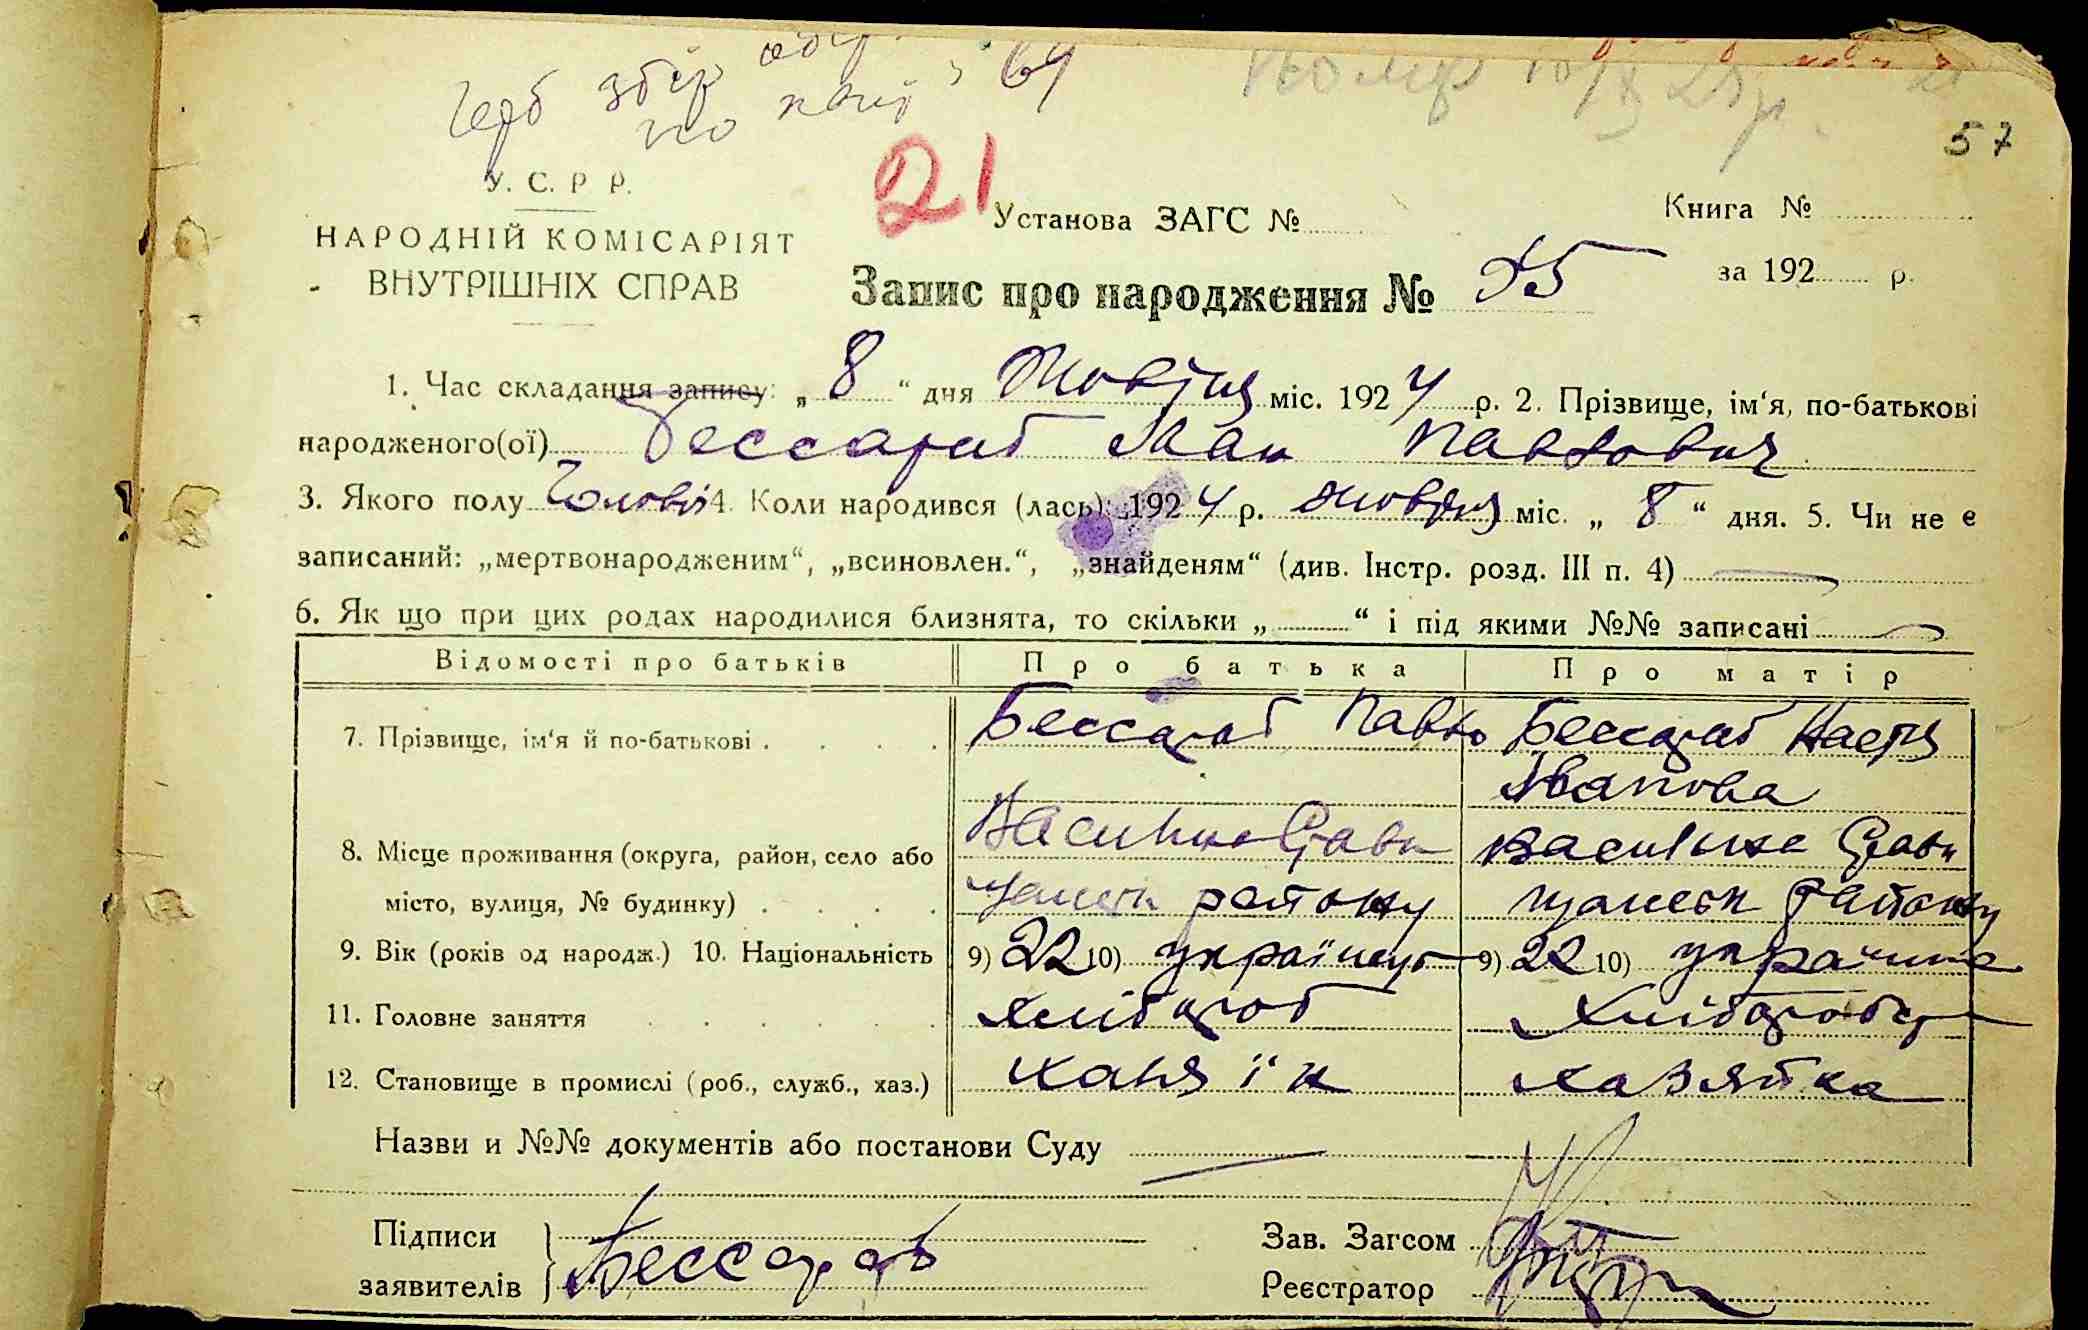 Герб збір
по
69
57
21
У. С. Р Р.
НАРОДНІЙ КОМІСАРІЯТ
ВНУТРІШНІХ СПРАВ
Установа ЗАГС №
Книга №
Запис про народження №
за 192 р.
1. Час складання запису: „ 8 “ дня Жовтня міс. 1924 р. 2. Прізвище, ім‘я, по-батькові
народженого(ої) Бессараб Іван Павлович
3. Якого полу Чоловіч 4. Коли народився (лась): 1924 р. жовтня міс. „ 8 “ дня. 5. Чи не є
записаний: „мертвонародженим“, „всиновлен.“, „знайденям“ (див. Інстр. розд. III п. 4)
6. Як що при цих родах народилися близнята, то скільки „ “ і під якими №№ записані
Відомості про батьків Про батька Про матір
7. Прізвище, ім‘я й по-батькові Бессараб Павло Бессараб Настя
Іванова
8. Місце проживання (округа, район, село або
місто, вулиця, № будинку) району району
9. Вік (років од народж.) 10. Національність 9) 22 10) українець 9) 22 10)
11. Головне заняття хлібороб
12. Становище в промислі (роб., служб., хаз.) хазяїн хазяйка
Назви и №№ документів або постанови Суду
Підписи
заявителів Бессараб
Зав. Загсом
Реєстратор